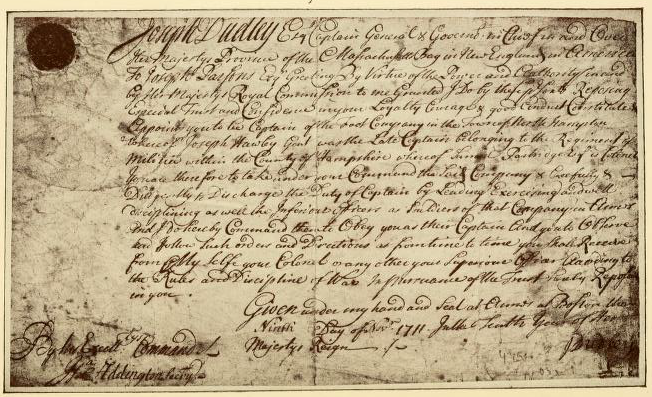 Joseph Dudley Esqr Captain General & Govern.r in Chief in and Over
Her Majestys Province of the Massachusetts Bay in New England in America
To Joseph Parsons Esqr Greeting By Virtue of the Power and Authority in and
by Her Majestys Royal Commission to me Granted I Do by these presents Reposing
Especial Trust and Confidence in your Loyalty Courage & good Conduct Constitute &
Appoint you to be Captain of the foot Company in the Town of North Hampton
whereof Joseph Hawley Gent was the Late Captain belonging to the Regiment of
Militia within the County of Hampshire whereof Partridge Esqr is Colonel
You are therefore to take under your Command the Said Company & Carefully &
Diligently to Discharge the Duty of Captain by Leading Exercising and well
Disciplining as well the Inferiour Officers as Soldiers of that Company in
And I Do hereby Command them to Obey you as their Captain And you to Observe
and follow Such orders and Directions as from time to time you Shall Receive
from My Selfe your Colonel or any other your Superiour Officer According to
the Rules and Discipline of War in Pursuance of the Trust hereby Reposed
in you
Given under my hand and Seal at at Boston the
Ninth Day of Novr. 1711. In the Tenth Year of Her
Majestys Reign
By his Excellcys Command
Addington Secry